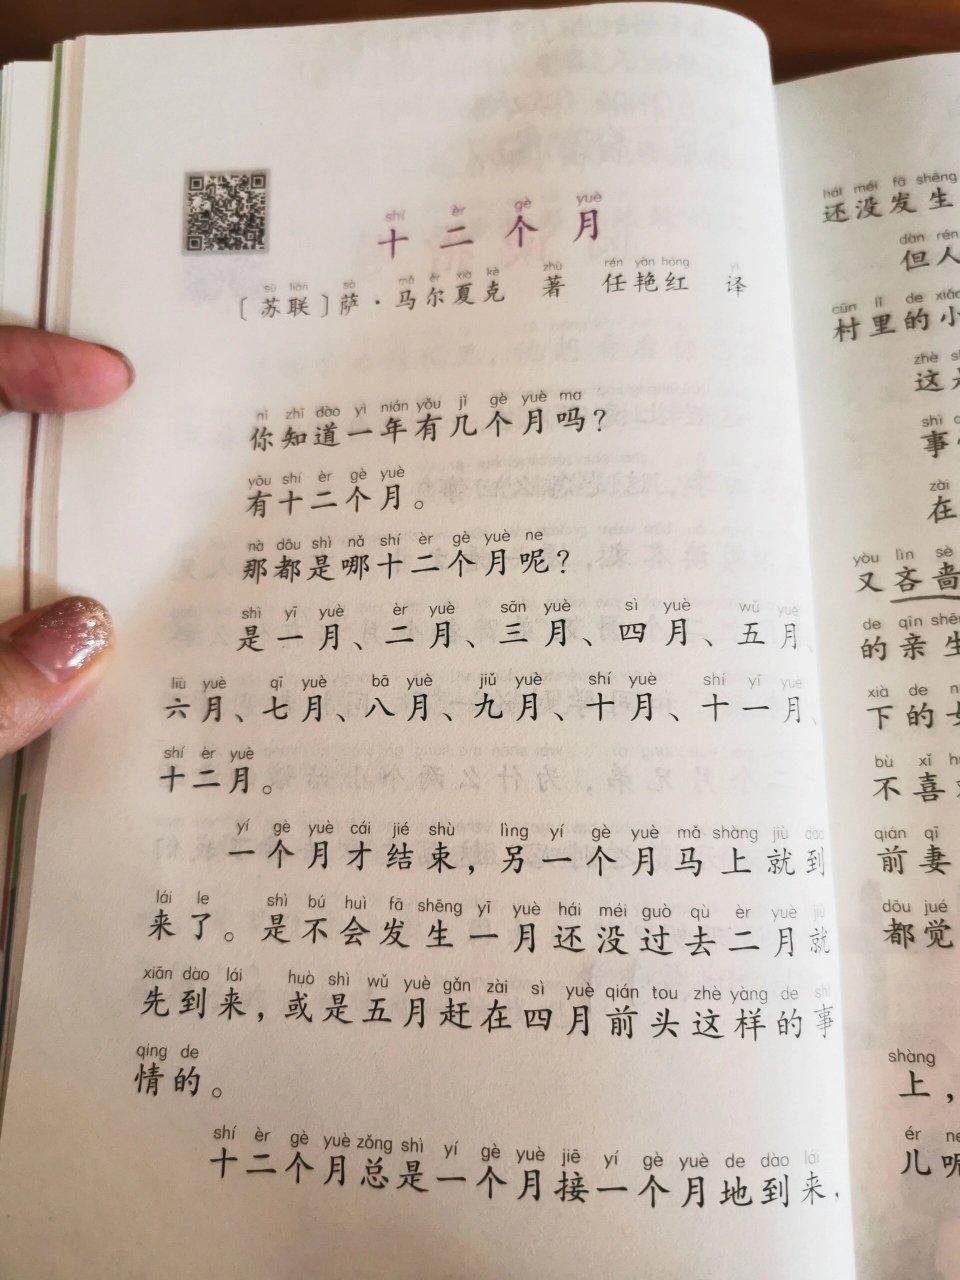 shí èr gè yuè
十二个月
sū lián sà mǎ ěr xià kè zhù rén yàn hóng yì
〔苏联〕萨·马尔夏克 著 任艳红 译
nǐ zhī dào yì nián yǒu jǐ gè yuè ma
你知道一年有几个月吗？
yǒu shí èr gè yuè
有十二个月。
nà dōu shì nǎ shí èr gè yuè ne
那都是哪十二个月呢？
shì yī yuè èr yuè sān yuè sì yuè wǔ yuè
是一月、二月、三月、四月、五月、
liù yuè qī yuè bā yuè jiǔ yuè shí yuè shí yī yuè
六月、七月、八月、九月、十月、十一月、
shí èr yuè
十二月。
yí gè yuè cái jié shù lìng yí gè yuè mǎ shàng jiù dào
一个月才结束，另一个月马上就到
lái le shì bú huì fā shēng yī yuè hái méi guò qù èr yuè jiù
来了。是不会发生一月还没过去二月就
xiān dào lái huò shì wǔ yuè gǎn zài sì yuè qián tou zhè yàng de shì
先到来，或是五月赶在四月前头这样的事
qing de
情的。
shí èr gè yuè zǒng shì yí gè yuè jiē yí gè yuè de dào lái
十二个月总是一个月接一个月地到来，
hái méi fā shēng
还没发生
dàn rén
但人
cūn lǐ de xiǎo
村里的小
zhè
这
shì
事
zài
在
yòu lìn sè
又吝啬
de qīn shēng
的亲生
xià de
下的
bù xǐ
不喜
qián qī
前妻
dōu jué
都觉
shàng
上，
ér ne
儿呢